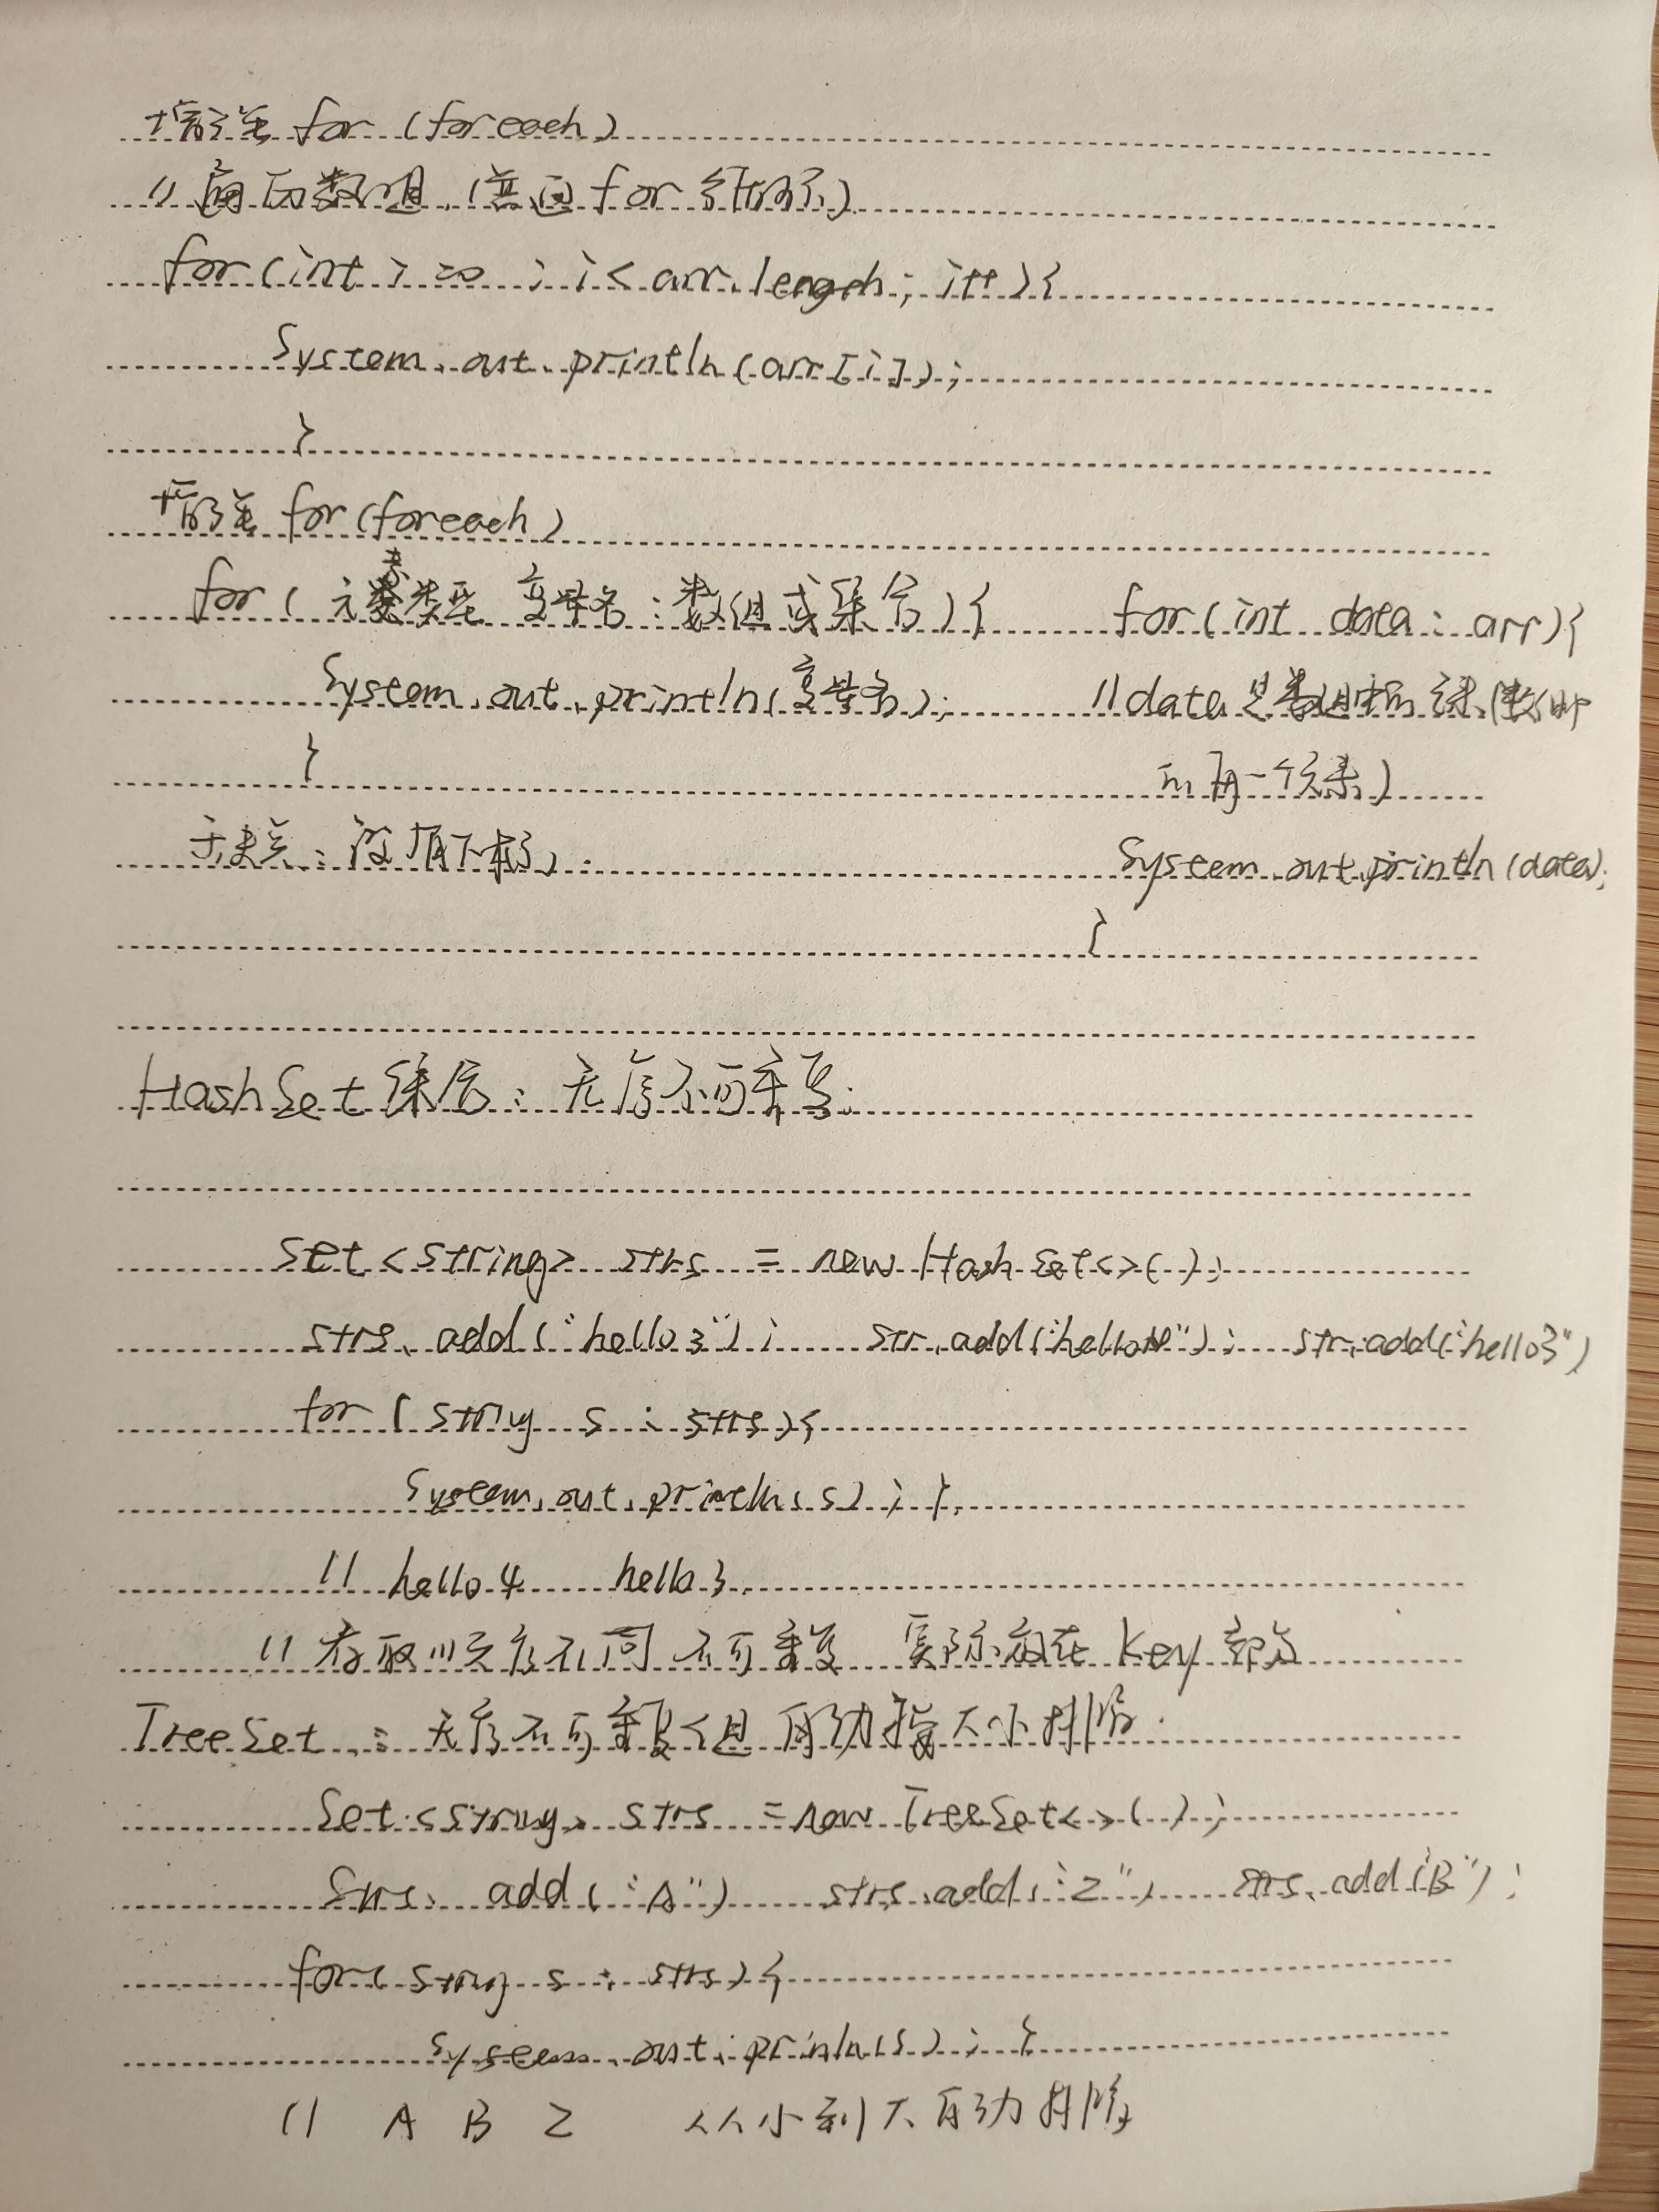 增强 for (foreach)
// 遍历数组 (普通 for 循环)
for (int i =0 ; i < arr.length ; i++ ) {
System.out.println (arr [i]) ;
}
增强 for (foreach)
for ( 元素类型 变量名 : 数组或集合 ) {
System.out.println (变量名) ;
}
缺点 : 没有下标 .
for (int data : arr) {
// data 是数组中的元素 (数组中
的每一个元素)
System.out.println (data) ;
}
HashSet 集合 : 无序不可重复 .
Set <String> strs = new HashSet<>( ) ;
strs.add ("hello3") ; str.add ("hello4") ; str.add ("hello3")
for ( String s : strs ) {
System.out.println ( s ) ; }
// hello4 hello3
// 存取顺序不同 不可重复 实际放在 key 部分
TreeSet : 无序不可重复 但 自动按大小排序 .
Set <String> strs = new TreeSet<>( ) ;
Strs. add ( "A" ) strs.add ( "Z" ) strs.add ("B") ;
for ( String s : strs ) {
System.out.prinln (s) ; }
// A B Z 从小到大自动排序